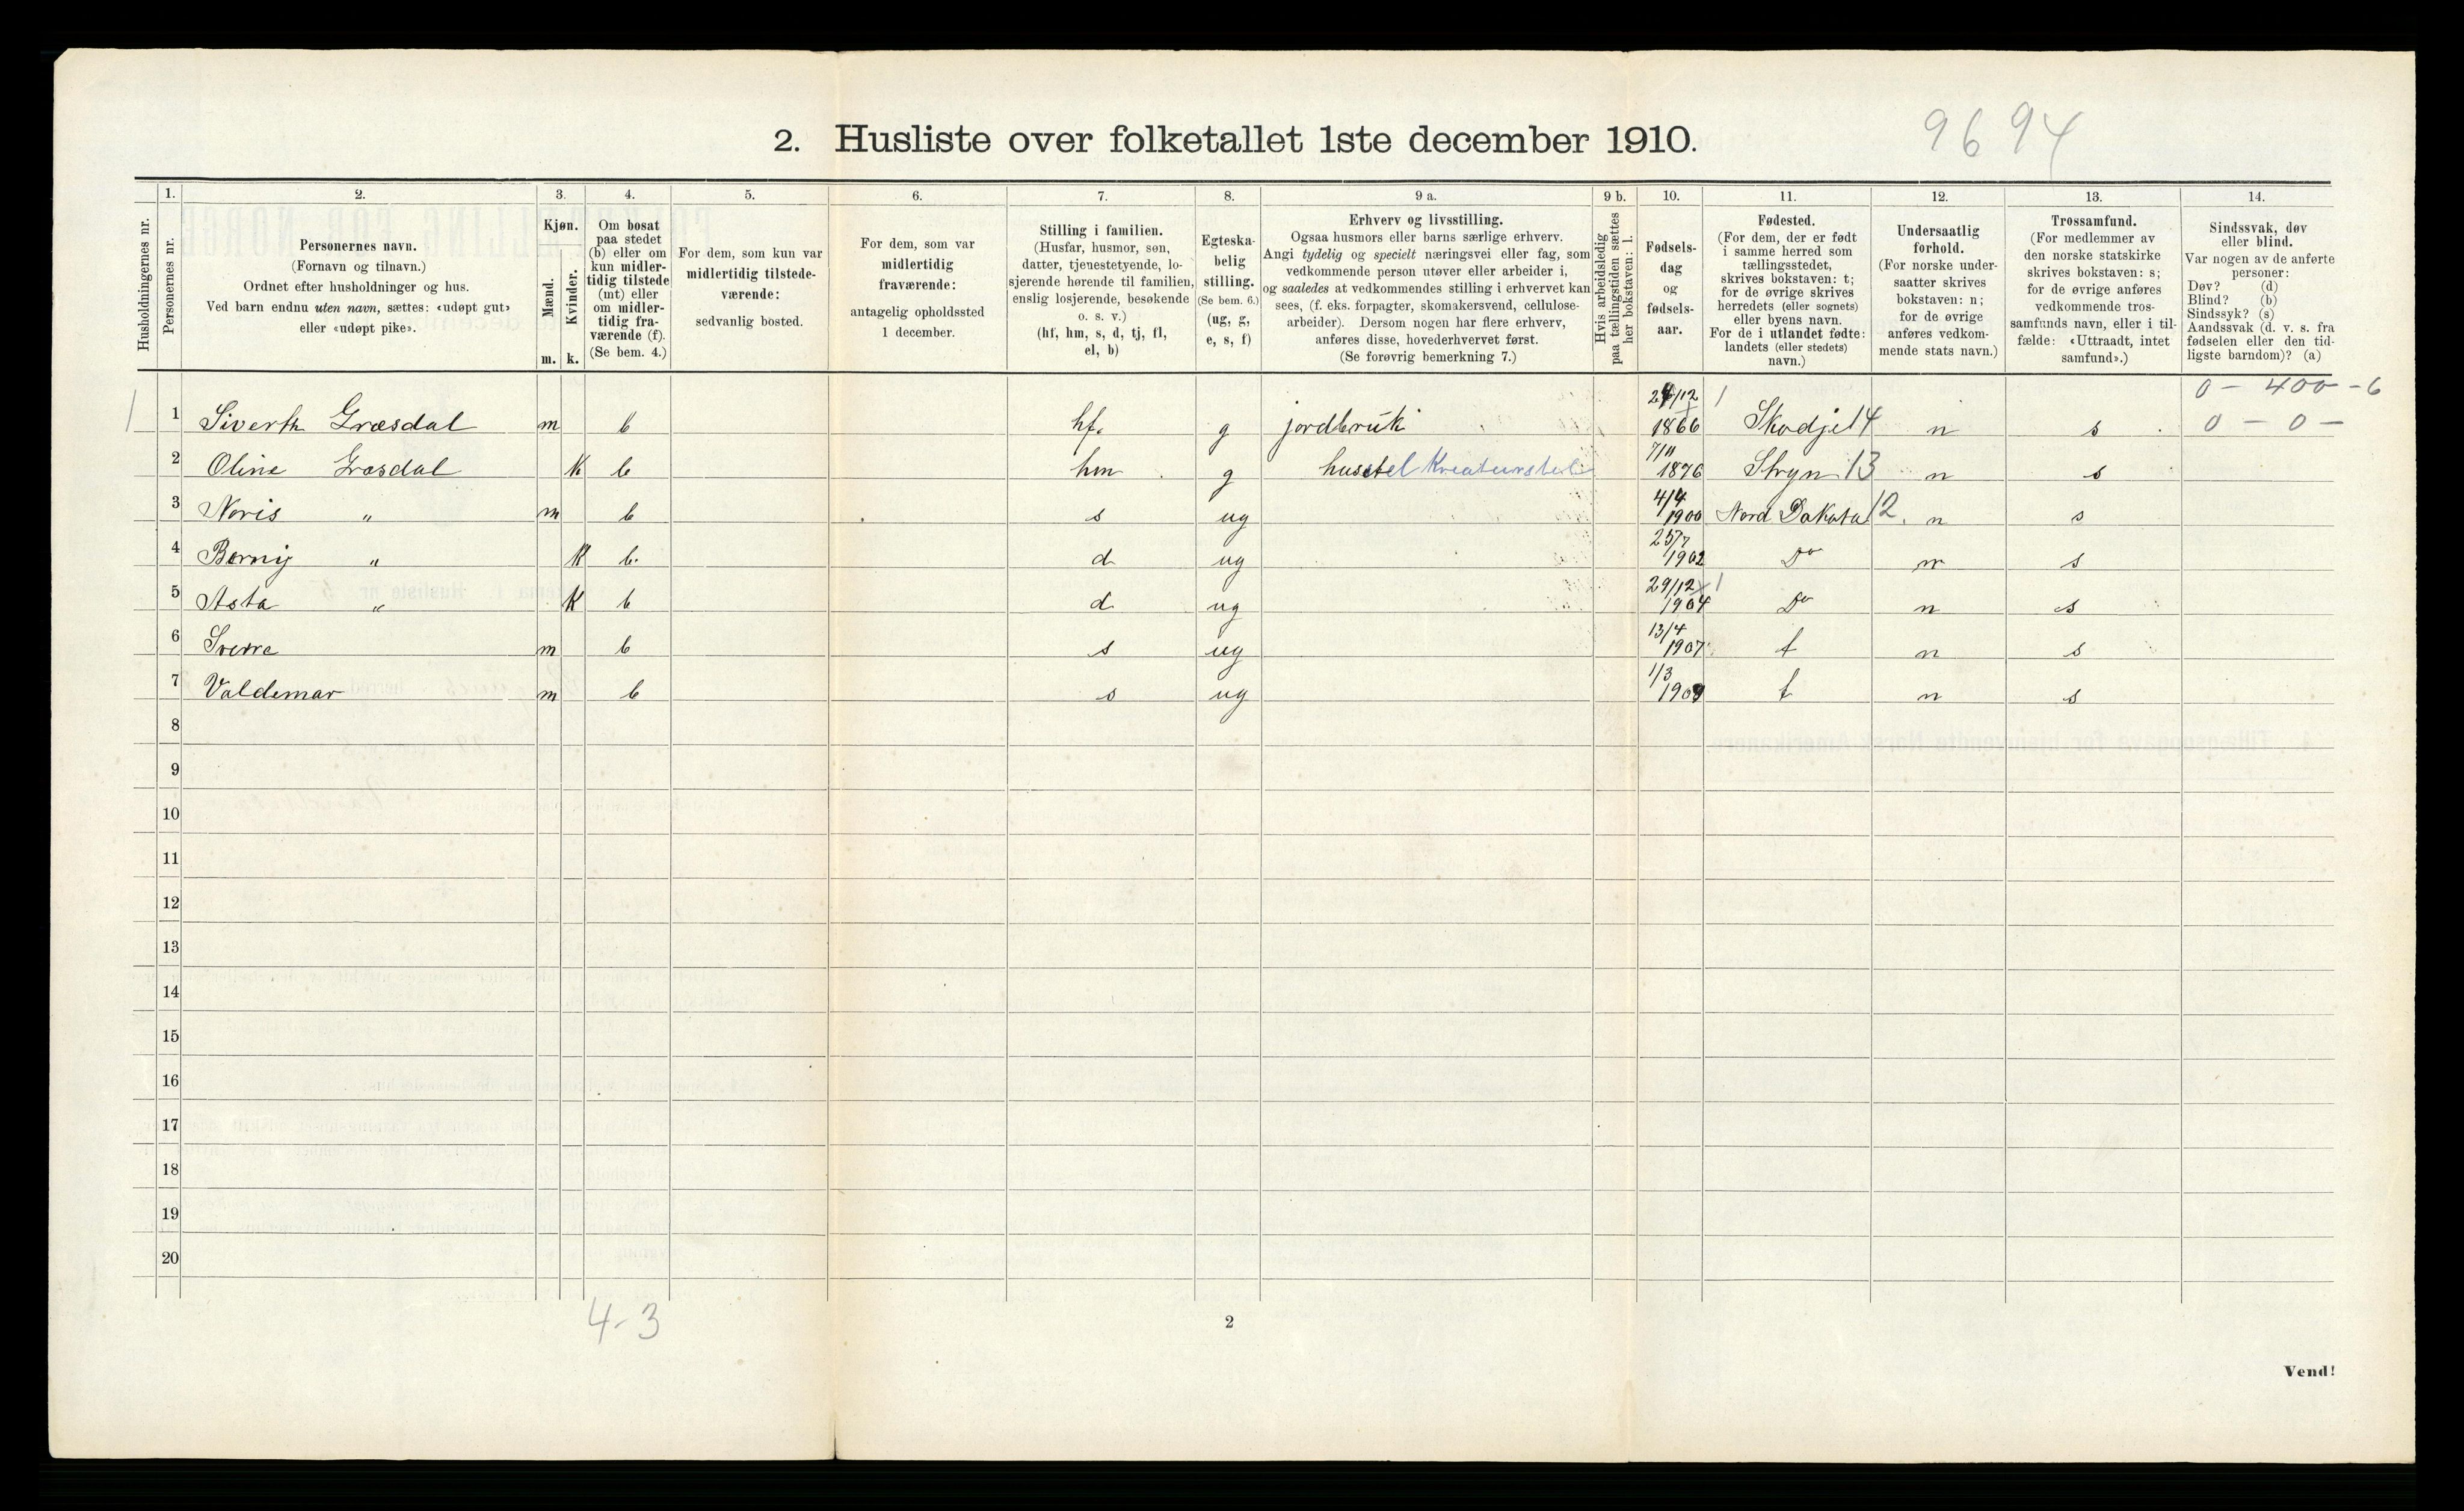 9694
2. Husliste over folketallet 1ste december 1910.
1. 2. 3. 4. 5. 6. 7. 8. 9 a. 9 b. 10. 11. 12. 13. 14.
Husholdningernes nr.
Personernes nr.
Personernes navn.
(Fornavn og tilnavn.)
Ordnet efter husholdninger og hus.
Ved barn endnu uten navn, sættes: «udøpt gut»
eller «udøpt pike».
Kjøn.
Mænd.
Kvinder.
m. k.
Om bosat
paa stedet
(b) eller om
kun midler-
tidig tilstede
(mt) eller
om midler-
tidig fra-
værende (f).
(Se bem. 4.)
For dem, som kun var
midlertidig tilstede-
værende:
sedvanlig bosted.
For dem, som var
midlertidig
fraværende:
antagelig opholdssted
1 december.
Stilling i familien.
(Husfar, husmor, søn,
datter, tjenestetyende, lo-
sjerende hørende til familien,
enslig losjerende, besøkende
o. s. v.)
(hf, hm, s, d, tj, fl,
el, b)
Egteska-
belig
stilling.
(Se bem. 6.)
(ug, g,
e, s, f)
Erhverv og livsstilling.
Ogsaa husmors eller barns særlige erhverv.
Angi tydelig og specielt næringsvei eller fag, som
vedkommende person utøver eller arbeider i,
og saaledes at vedkommendes stilling i erhvervet kan
sees, (f. eks. forpagter, skomakersvend, cellulose-
arbeider). Dersom nogen har flere erhverv,
anføres disse, hovederhvervet først.
(Se forøvrig bemerkning 7.)
Hvis arbeidsledig
paa tællingstiden sættes
her bokstaven: l.
Fødsels-
dag
og
fødsels-
aar.
Fødested.
(For dem, der er født
i samme herred som
tællingsstedet,
skrives bokstaven: t;
for de øvrige skrives
herredets (eller sognets)
eller byens navn.
For de i utlandet fødte:
landets (eller stedets)
navn.)
Undersaatlig
forhold.
(For norske under-
saatter skrives
bokstaven: n;
for de øvrige
anføres vedkom-
mende stats navn.)
Trossamfund.
(For medlemmer av
den norske statskirke
skrives bokstaven: s;
for de øvrige anføres
vedkommende tros-
samfunds navn, eller i til-
fælde: «Uttraadt, intet
samfund».)
Sindssvak, døv
eller blind.
Var nogen av de anførte
personer:
Døv? (d)
Blind? (b)
Sindssyk? (s)
Aandssvak (d. v. s. fra
fødselen eller den tid-
ligste barndom)? (a)
0 - 400 - 6
1 1 Siverth Græsdal m b hf. g jordbruk /12 1866 1 Skodje 14 n s 0 - 0 -
2 Oline Græsdal k b hm g husstel Kreaturstel 7/11 1876 Stryn 13 n s
3 Noris " m b s ug 4/4 1900 Nord Dakota 12 n s
4 " k b. d ug 25/7 1902 Do n s
5 Asta " k b d ug 29/12 1904 x 1 Do n s
6 Sverre m b s ug 13/4 1907 t n s
7 Valdemar m b s ug 1/3 1909 t n s
8
9
10
11
12
13
14
15
16
17
18
19
20
4-3
2
Vend!